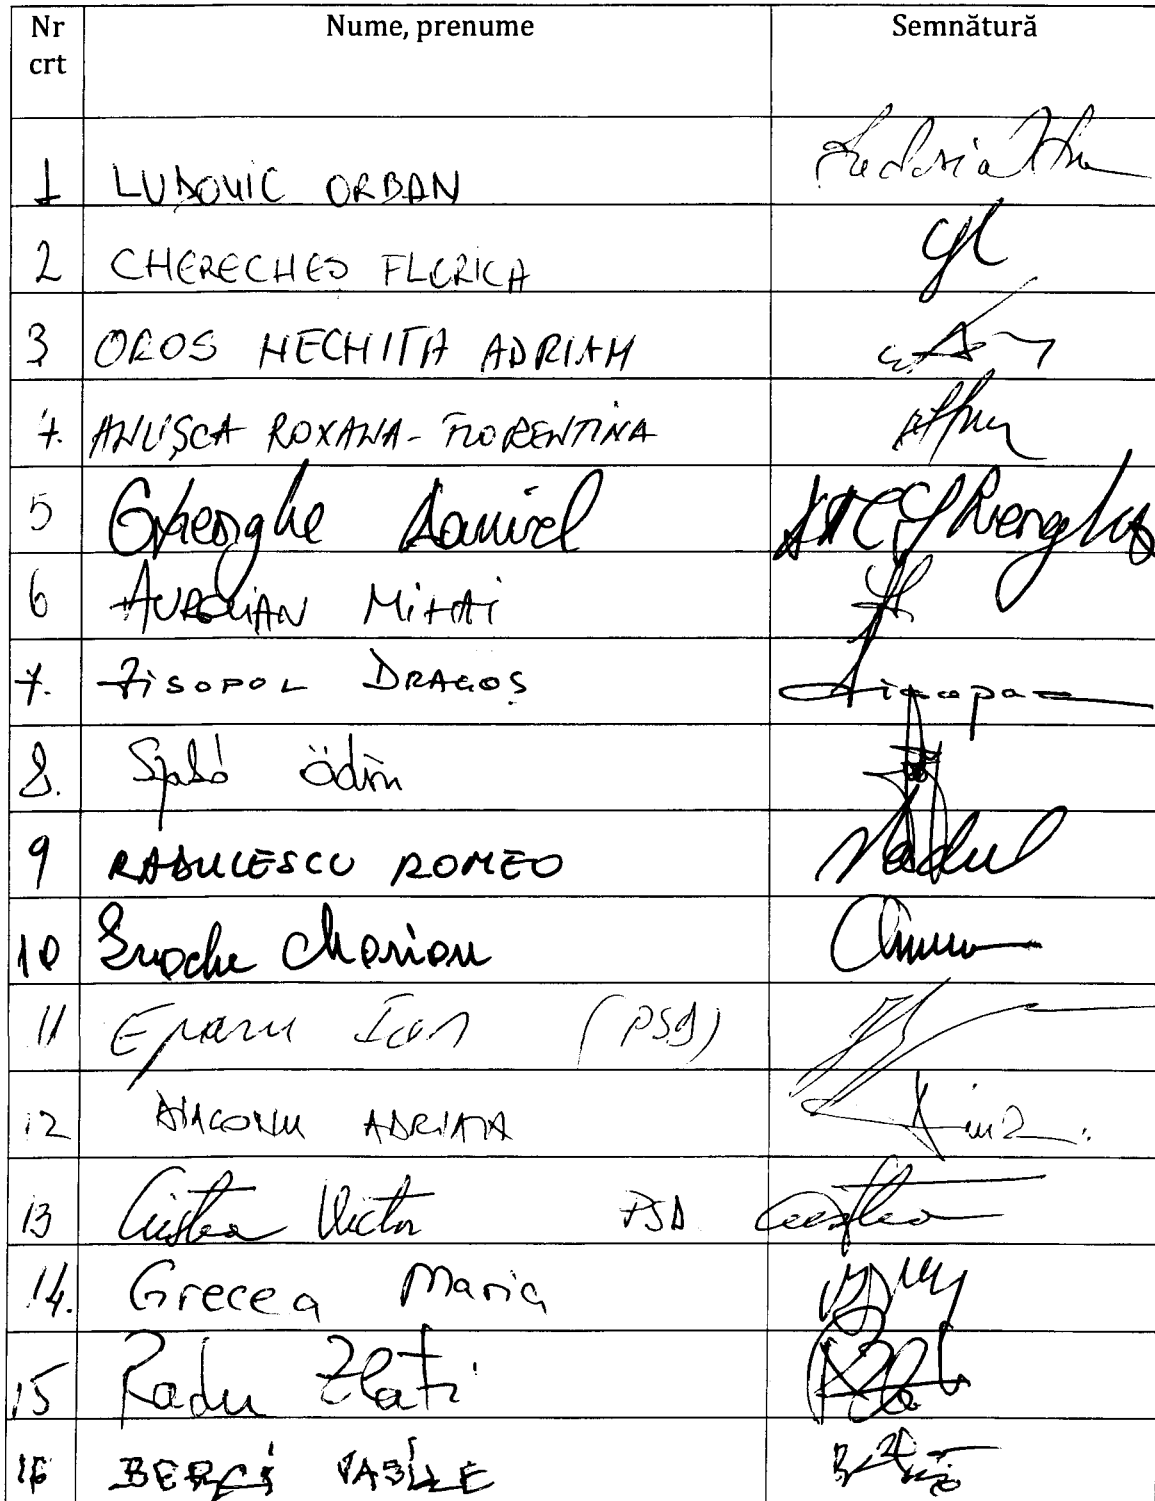 Nr crt Nume, prenume Semnătură
1 LUDOVIC ORBAN
2 CHERECHEȘ FLORICA
3 OROS NECHITA ADRIAN
4. ANUȘCA ROXANA-FLORENTINA
5 Gheorghe Daniel
6 AURELIAN MIHAI
7. ZISOPOL DRAGOȘ
8. Szabó Ödön
9 RADULESCU ROMEO
10 Enache Marian
11 Eparu Ion (PSD)
12 DIACONU ADRIANA
13 Cristea Victor PSD
14. Grecea Maria
15 Radu Zlati
16 BERCI VASILE